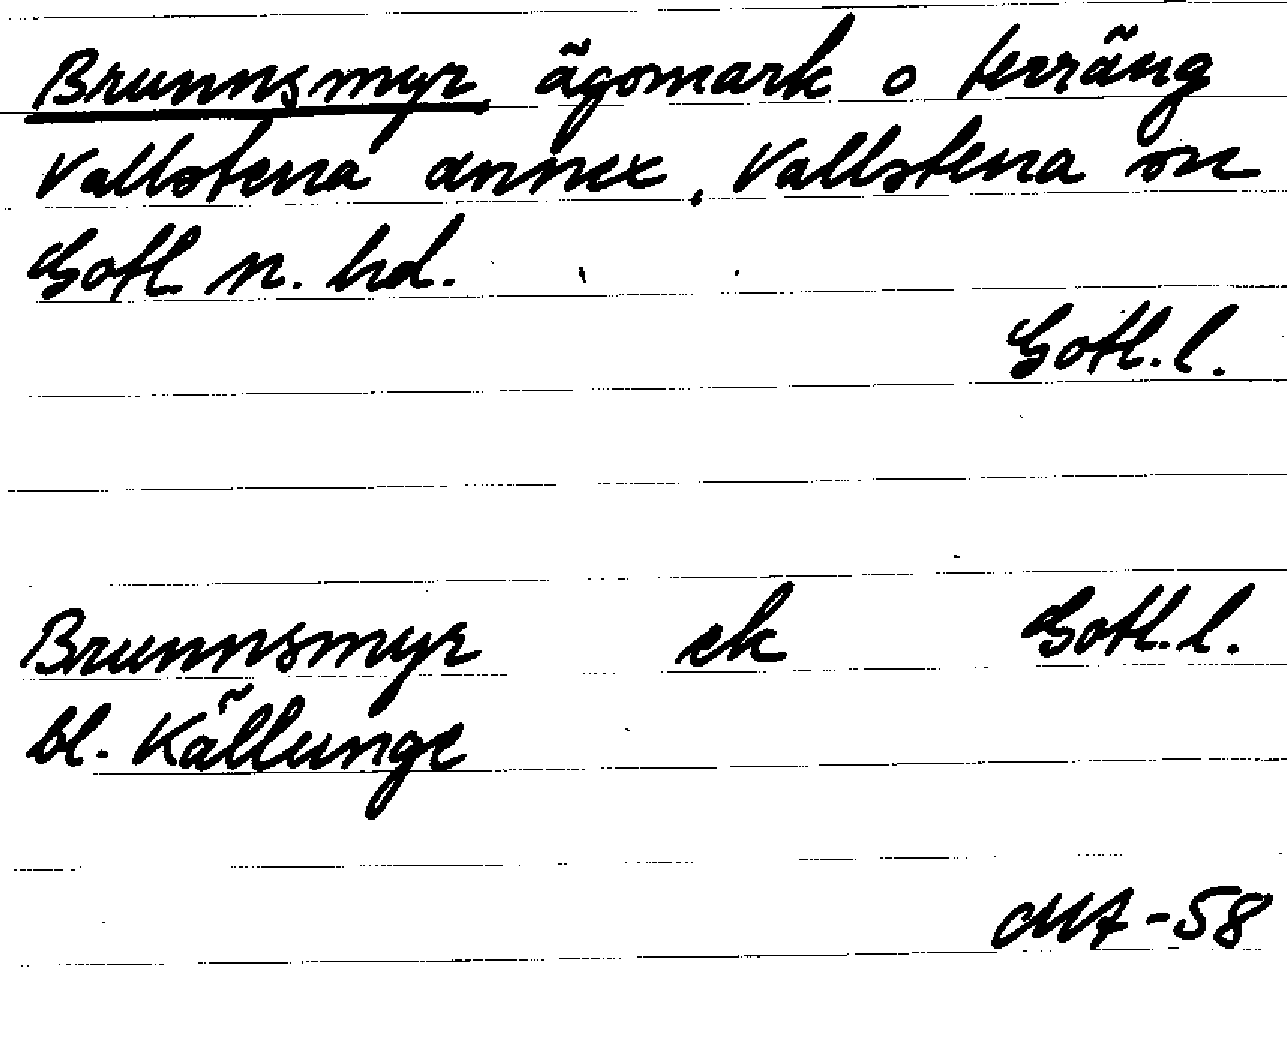 Brunnsmyr ägomark o terräng
Vallstena annex, Vallstena sn
Gotl n. hd.
Gotl. l.
Brunnsmyr ek Gotl. l.
bl. Källunge
MA -58